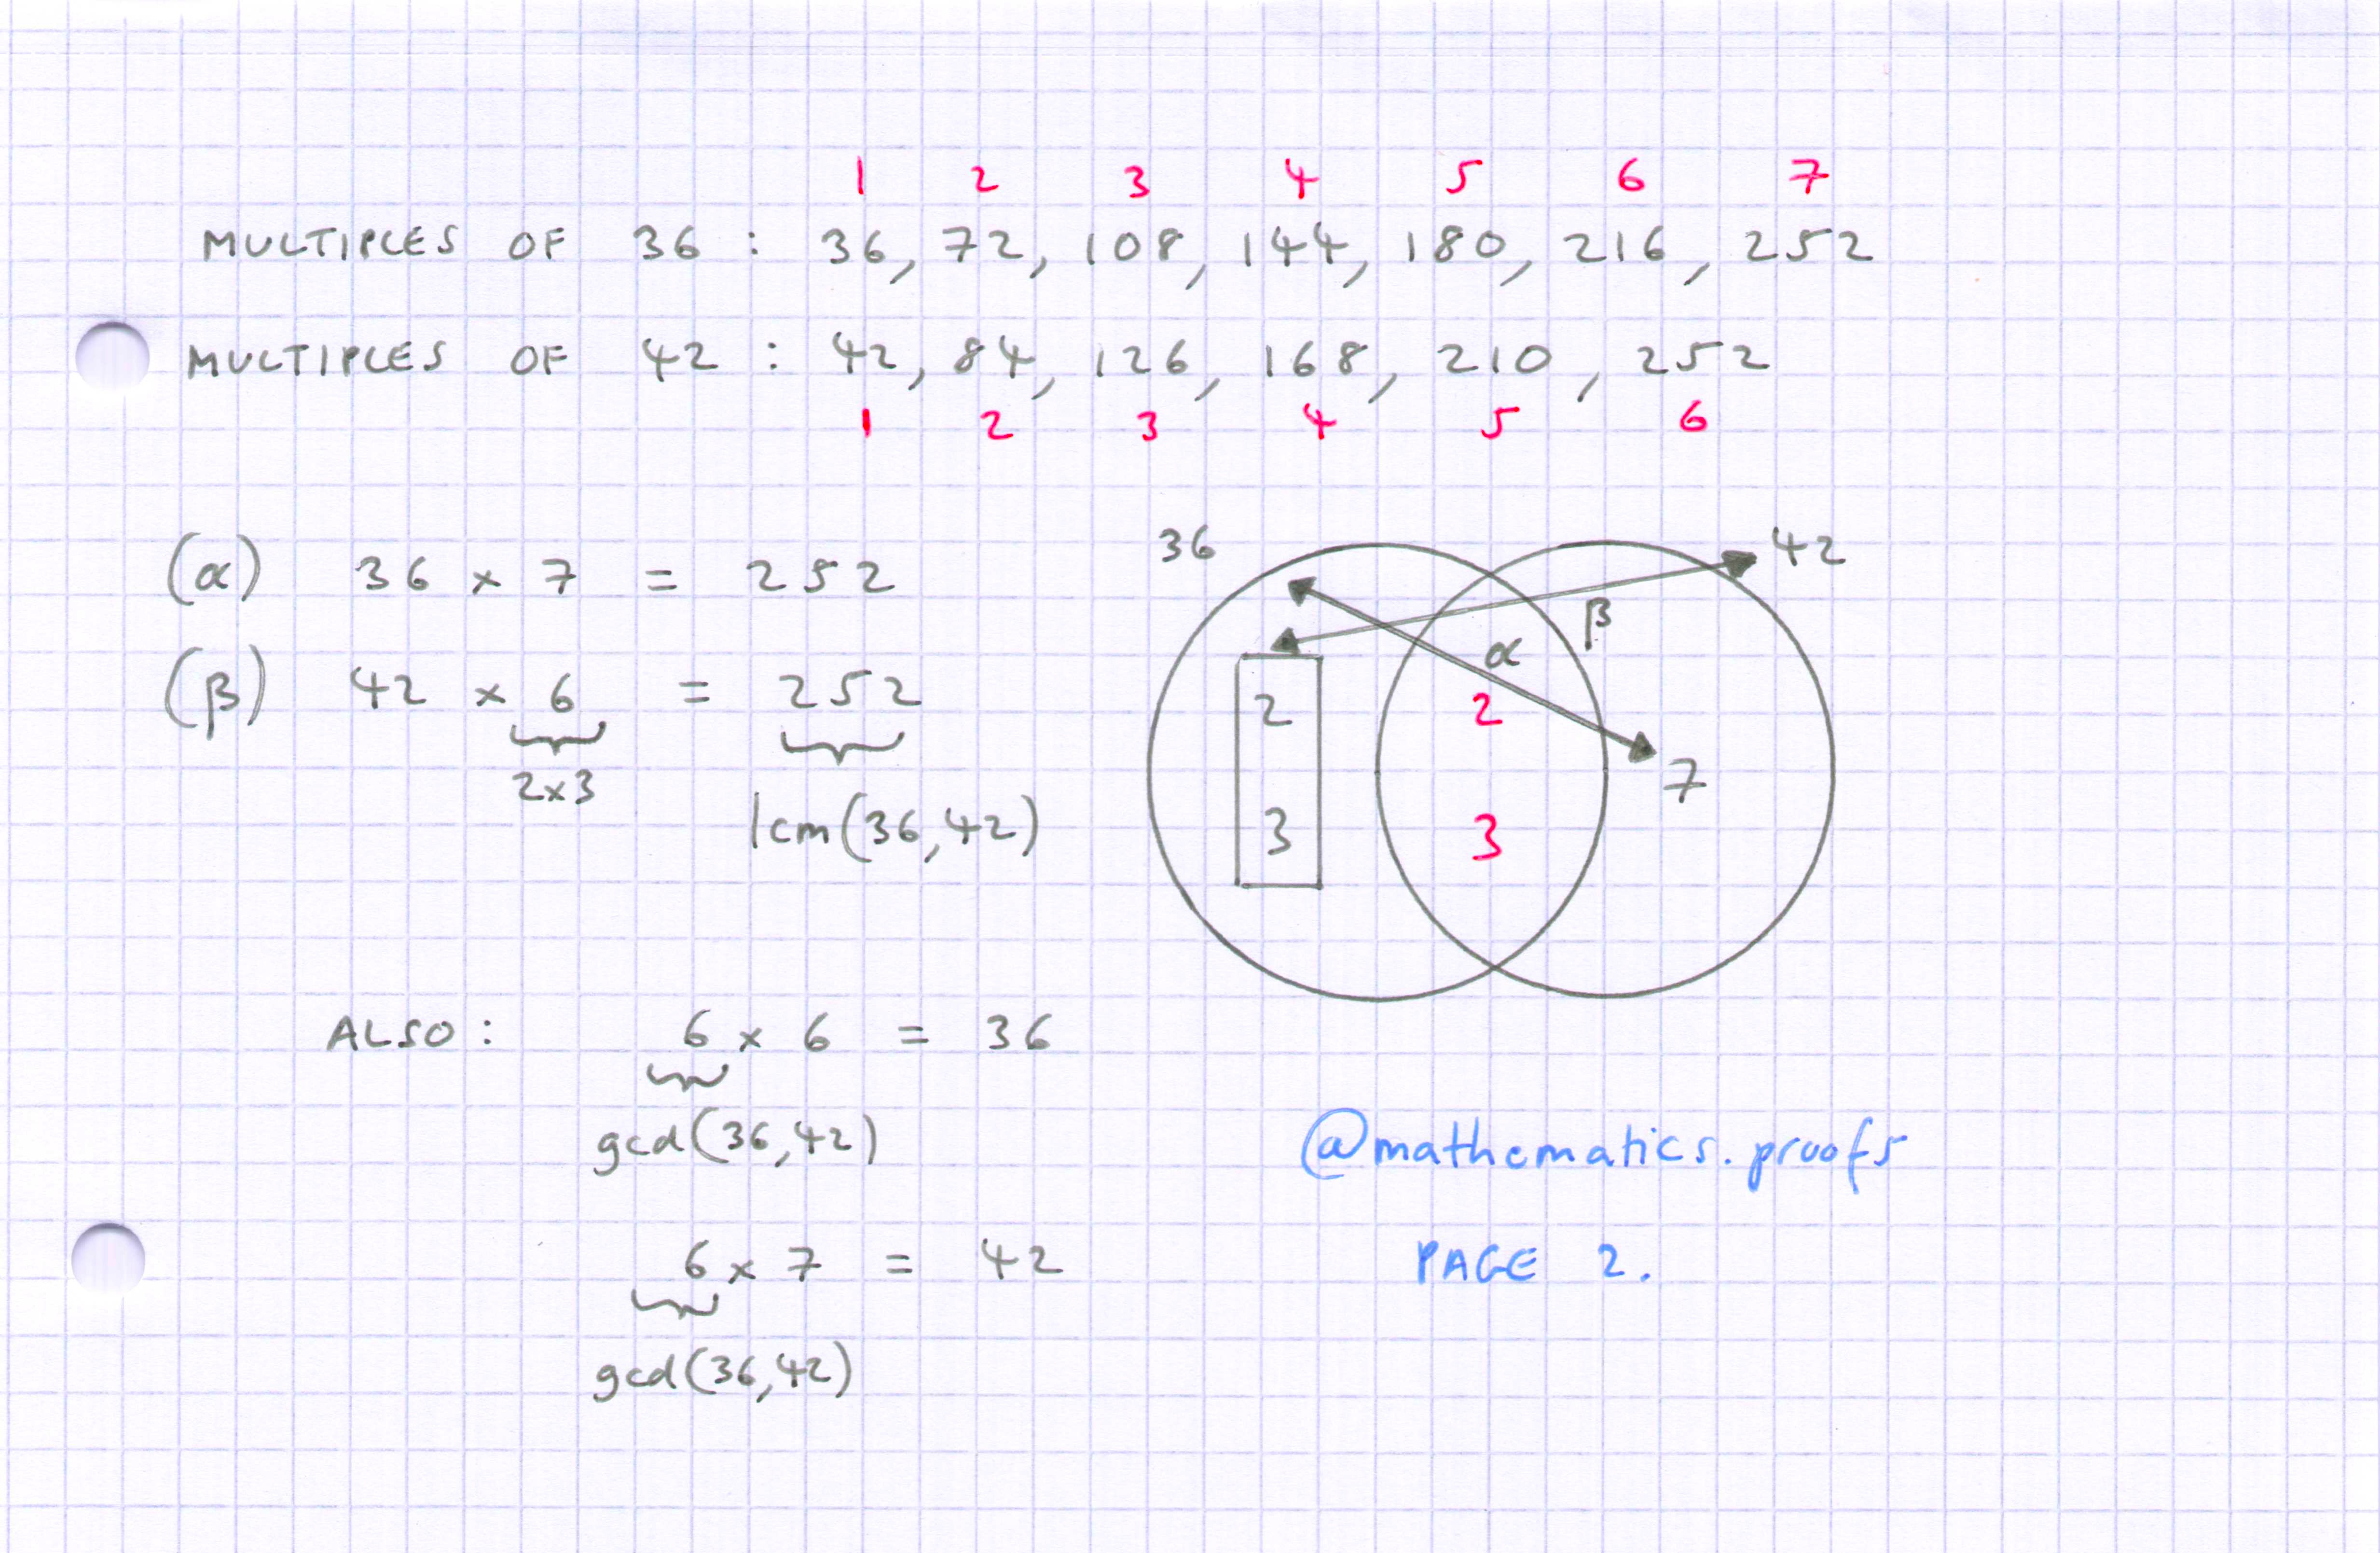 1 2 3 4 5 6 7
MULTIPLES OF 36 : 36, 72, 108, 144, 180, 216, 252
MULTIPLES OF 42 : 42, 84, 126, 168, 210, 252
1 2 3 4 5 6
(α) 36 × 7 = 252
(β) 42 × 6 = 252
2×3
lcm(36,42)
36
42
β
α
2 2
7
3 3
ALSO : 6 × 6 = 36
gcd(36,42)
6 × 7 = 42
gcd(36,42)
@mathematics.proofs
PAGE 2.